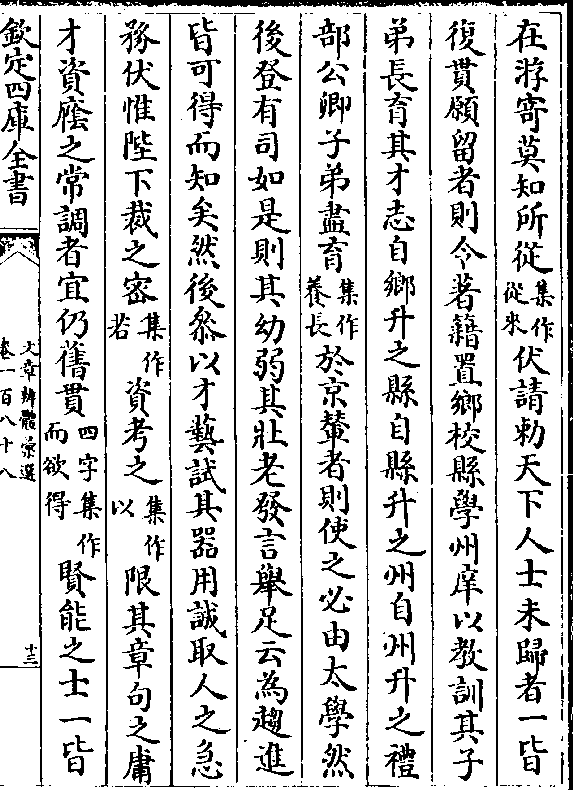 在游寄莫知所從集作從來伏請勅天下人士未歸者一皆
復貫願留者則令著籍置鄉校縣學州庠以教訓其子
弟長育其才志自鄉升之縣自縣升之州自州升之禮
部公卿子弟盡育集作養長於京輦者則使之必由太學然
後登有司如是則其幼弱其壯老發言舉足云為趨進
皆可得而知矣然後叅以才藝試其器用誠取人之急
務伏惟陛下裁之密集作若資考之集作以限其章句之庸
才資廕之常調者宜仍舊貫四字集作而欲得賢能之士一皆
欽定四庫全書
文章辨體彚選
卷一百八十八
十三